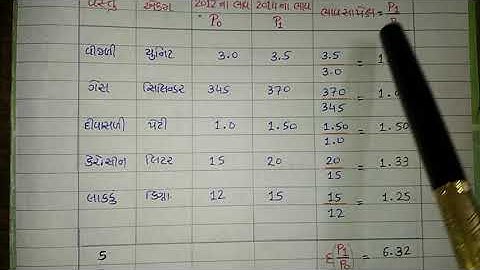 વસ્તુ એકમ 2012ના ભાવ 2014ના ભાવ ભાવ સાપેક્ષ = P₁
P₀ P₁
વીજળી યુનિટ 3.0 3.5 3.5/3.0 =
ગેસ સિલિન્ડર 345 370 370/345 =
દીવાસળી પેટી 1.0 1.50 1.50/1.0 = 1.50
કેરોસીન લિટર 15 20 20/15 = 1.33
લાકડું કિગ્રા 12 15 15/12 = 1.25
5 Σ(P₁/P₀) = 6.32